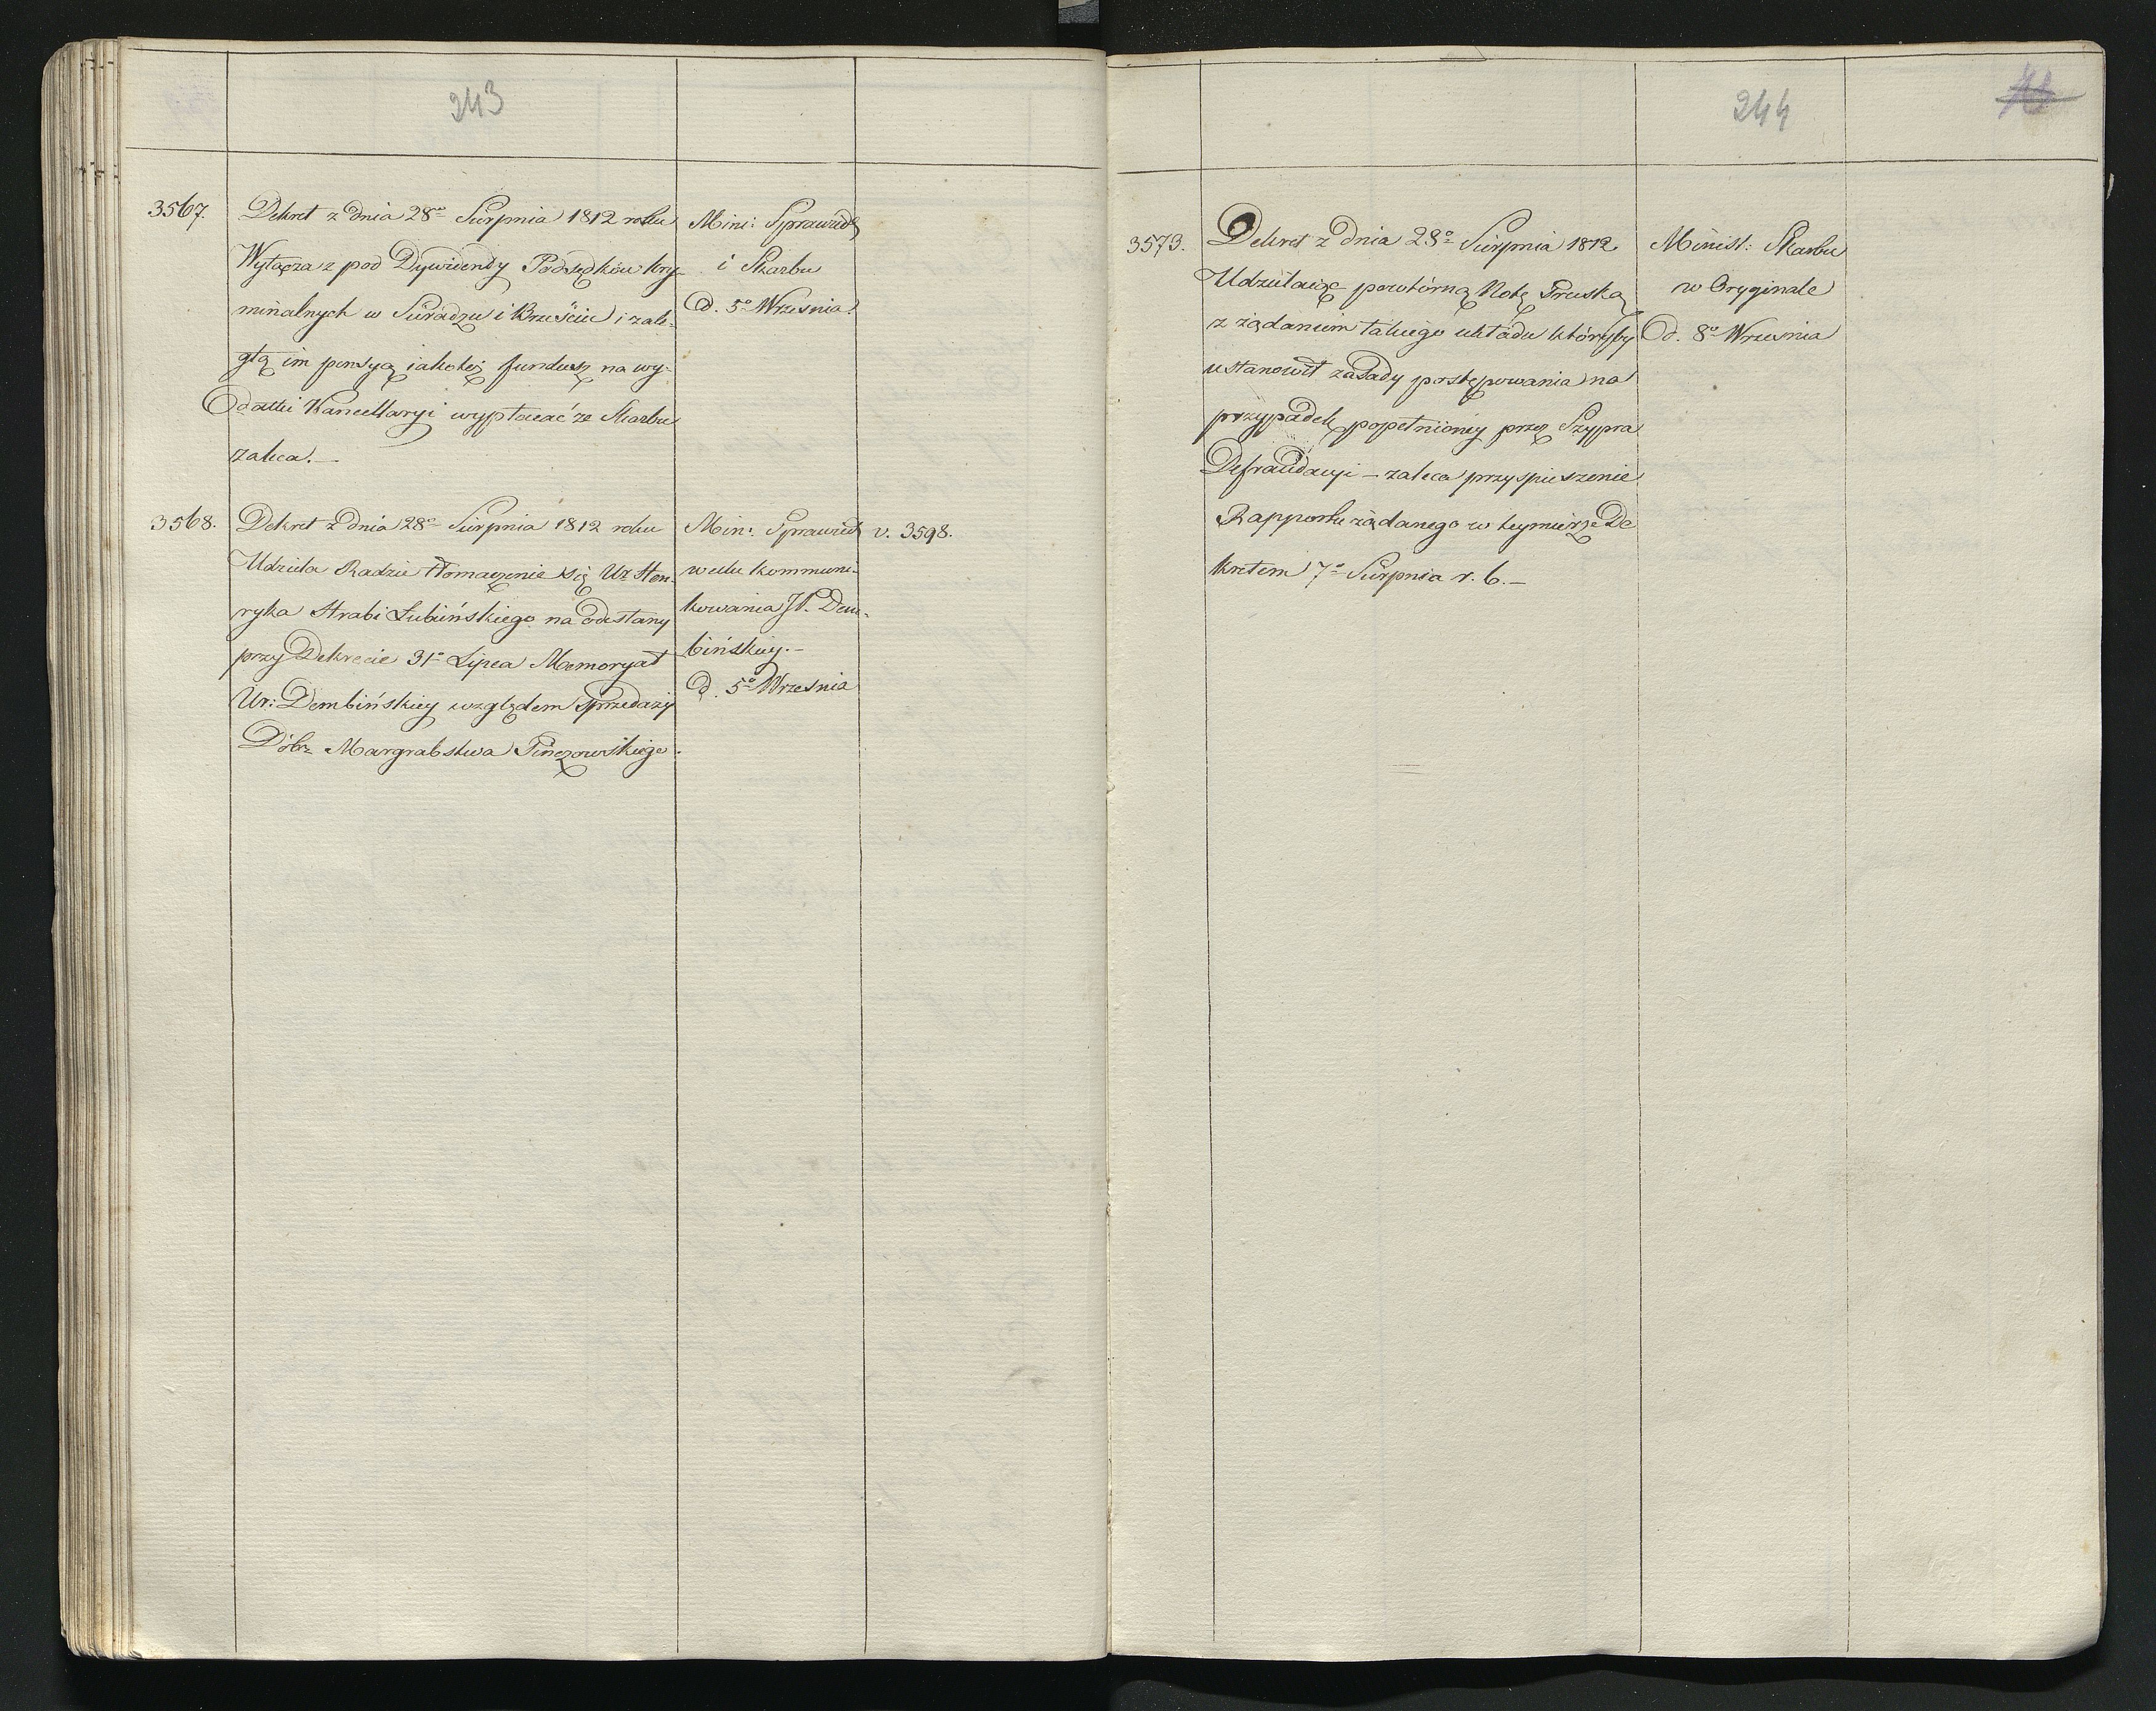 243
3567.
Dekret z dnia 28o Sierpnia 1812 roku
Wyłącza z pod Dywidendy Podsędków kry-
minalnych w Sieradzu i Brześciu i zale-
głą im pensyą iakoteż fundusz na wy-
datki Kancellaryi wypłacać ze Skarbu
zaleca.—
Mini: Sprawied
i Skarbu
d. 5o Wrzesnia
3568.
Dekret z dnia 28o Sierpnia 1812 roku
Udziela Radzie tłomaczenie się Ur Hen-
ryka Hrabi Łubińskiego na odesłany
przy Dekrecie 31o Lipca Memoryał
Ur: Dembińskiey względem sprzedaży
Dóbr Margrabstwa Pinczowskiego.
Min: Sprawied
w celu kommuni-
kowania JP. Dem-
bińskiey.—
d. 5o Wrzesnia
v. 3598.
244
3573.
Dekret z dnia 28o Sierpnia 1812
Udzielaiąc powtórną Notę Pruską
z żądaniem takiego układu któryby
ustanowił zasady postępowania na
przypadek popełnioney przez Szypra
Defraudacyi — zaleca przyspieszenie
Rapportu żądanego w teymierze De
kretem 7o Sierpnia r. b.—
Minist: Skarbu
w Oryginale
d. 8o Wrzesnia